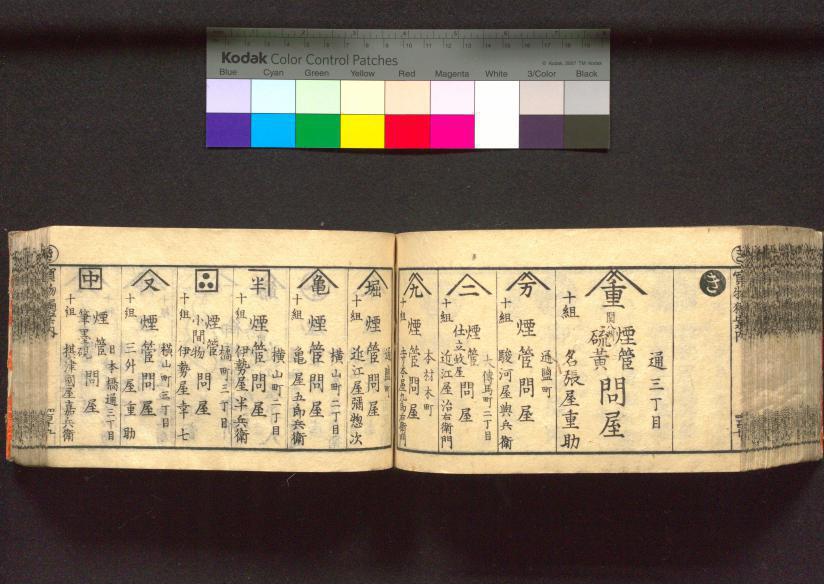 Kodak Color Control Patches
© Kodak, 2007 TM: Kodak
Blue Cyan Green Yellow Red Magenta White 3/Color Black
き
通三丁目
重
煙管
硫黄
問屋
十組
名張屋重助
通塩町
煙管問屋
十組
駿河屋與兵衛
大傳馬町二丁目
二
煙管
問屋
十組
近江屋治右衛門
本材木町
九
煙管問屋
十組
横山町
堀
煙管問屋
十組
近江屋彌惣次
横山町二丁目
亀
煙管問屋
十組
亀屋五郎兵衛
横山町二丁目
半
煙管問屋
十組
伊勢屋半兵衛
橘町三丁目
煙管
小間物
問屋
十組
伊勢屋幸七
横山町三丁目
又
煙管問屋
十組
三外屋重助
日本橋通三丁目
中
煙管
筆墨硯
問屋
十組
摂津國屋嘉兵衛